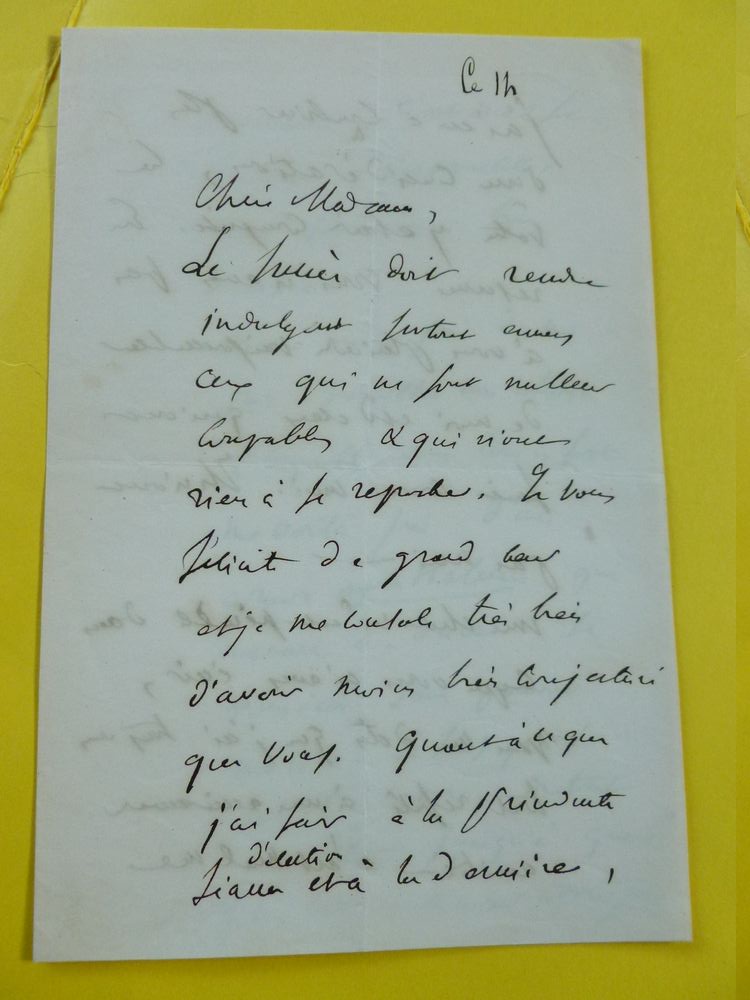 Ce 14
Chère Madame,
Le succès doit rendre
indulgent surtout envers
ceux qui ne sont nullement
coupables & qui n'ont
rien à se reprocher. Je vous
félicite de grand coeur
et je me console très bien
d'avoir moins bien conjecturé
que vous. Quant à ce que
j'ai fait à la précédente
d'élection
séance et à la dernière,